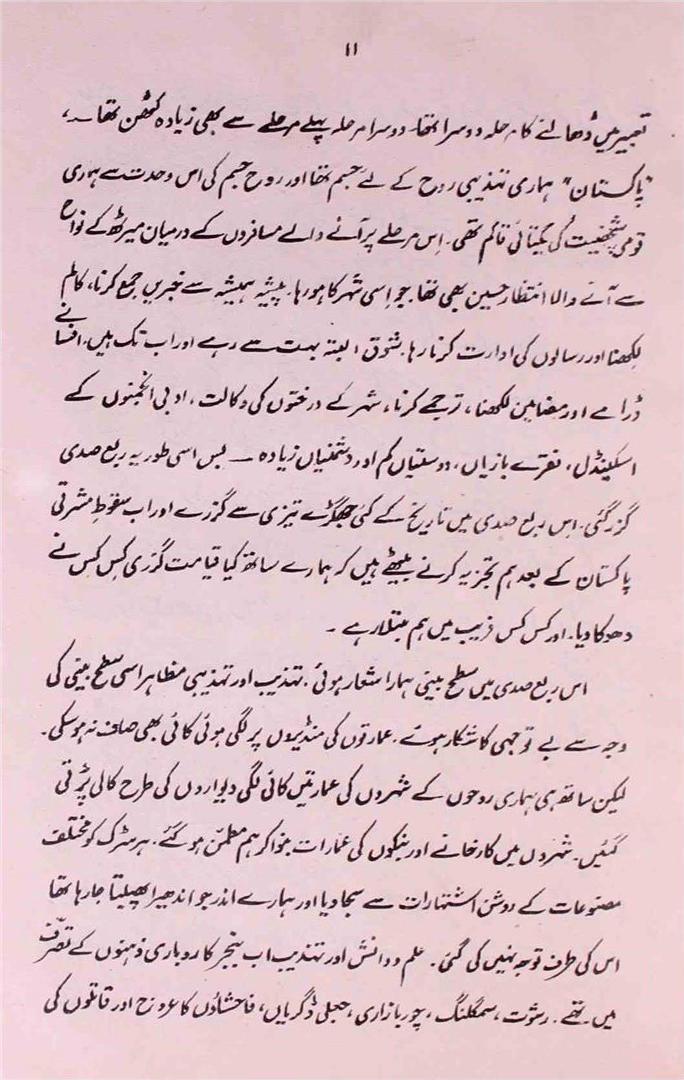 ۱۱
تعبیر میں ڈھالنے کا مرحلہ دوسرا تھا۔ دوسرا مرحلہ پہلے مرحلے سے بھی زیادہ کٹھن تھا۔،
"پاکستان" ہماری تہذیبی روح کے لئے جسم تھا اور روح جسم کی اس وحدت سے ہماری
قومی شخصیت کی یکتائی قائم تھی۔ اِس مرحلے پر آنے والے مسافروں کے درمیان میرٹھ کے نواح
سے آنے والا انتظار حسین بھی تھا۔ جو اِسی شہر کا ہو رہا۔ پیشہ ہمیشہ سے خبریں جمع کرنا، کالم
لکھنا اور رسالوں کی ادارت کرنا رہا۔ شوق البتہ بہت سے رہے اور اب تک ہیں۔ افسانے
ڈرامے اور مضامین لکھنا، ترجمے کرنا، شہر کے درختوں کی وکالت، ادبی انجمنوں کے
اسکینڈل، فقرے بازیاں، دوستیاں کم اور دشمنیاں زیادہ ــ بس اسی طور یہ ربع صدی
گزر گئی۔ اس ربع صدی میں تاریخ کے کئی جھکڑے تیزی سے گزرے اور اب سقوطِ مشرقی
پاکستان کے بعد ہم تجزیہ کرنے بیٹھے ہیں کہ ہمارے ساتھ کیا قیامت گزری کِس کِس نے
دھوکا دیا۔ اور کس کس فریب میں ہم مبتلا رہے ۔
اس ربع صدی میں سطح بینی ہمارا شعار ہوئی۔ تہذیب اور تہذیبی مظاہر اسی سطح بینی کی
وجہ سے بے توجہی کا شکار ہوئے۔ عمارتوں کی منڈیروں پر لگی ہوئی کائی بھی صاف نہ ہوسکی۔
لیکن ساتھ ہی ہماری روحوں کے شہروں کی عمارتیں کائی لگی دیواروں کی طرح کالی پڑتی
گئیں۔ شہروں میں کارخانے اور بنکوں کی عمارات بنوا کر ہم مطمئن ہو گئے۔ ہر سڑک کو مختلف
مصنوعات کے روشن اشتہارات سے سجا دیا اور ہمارے اندر جو اندھیرا پھیلتا جا رہا تھا
اس کی طرف توجہ نہیں کی گئی۔ علم و دانش اور تہذیب اب بنجر کاروباری ذہنوں کے تصرّف
میں تھے۔ رشوت، سمگلنگ، چور بازاری، جعلی ڈگریاں، فاحشاؤں کا عروج اور قاتلوں کی